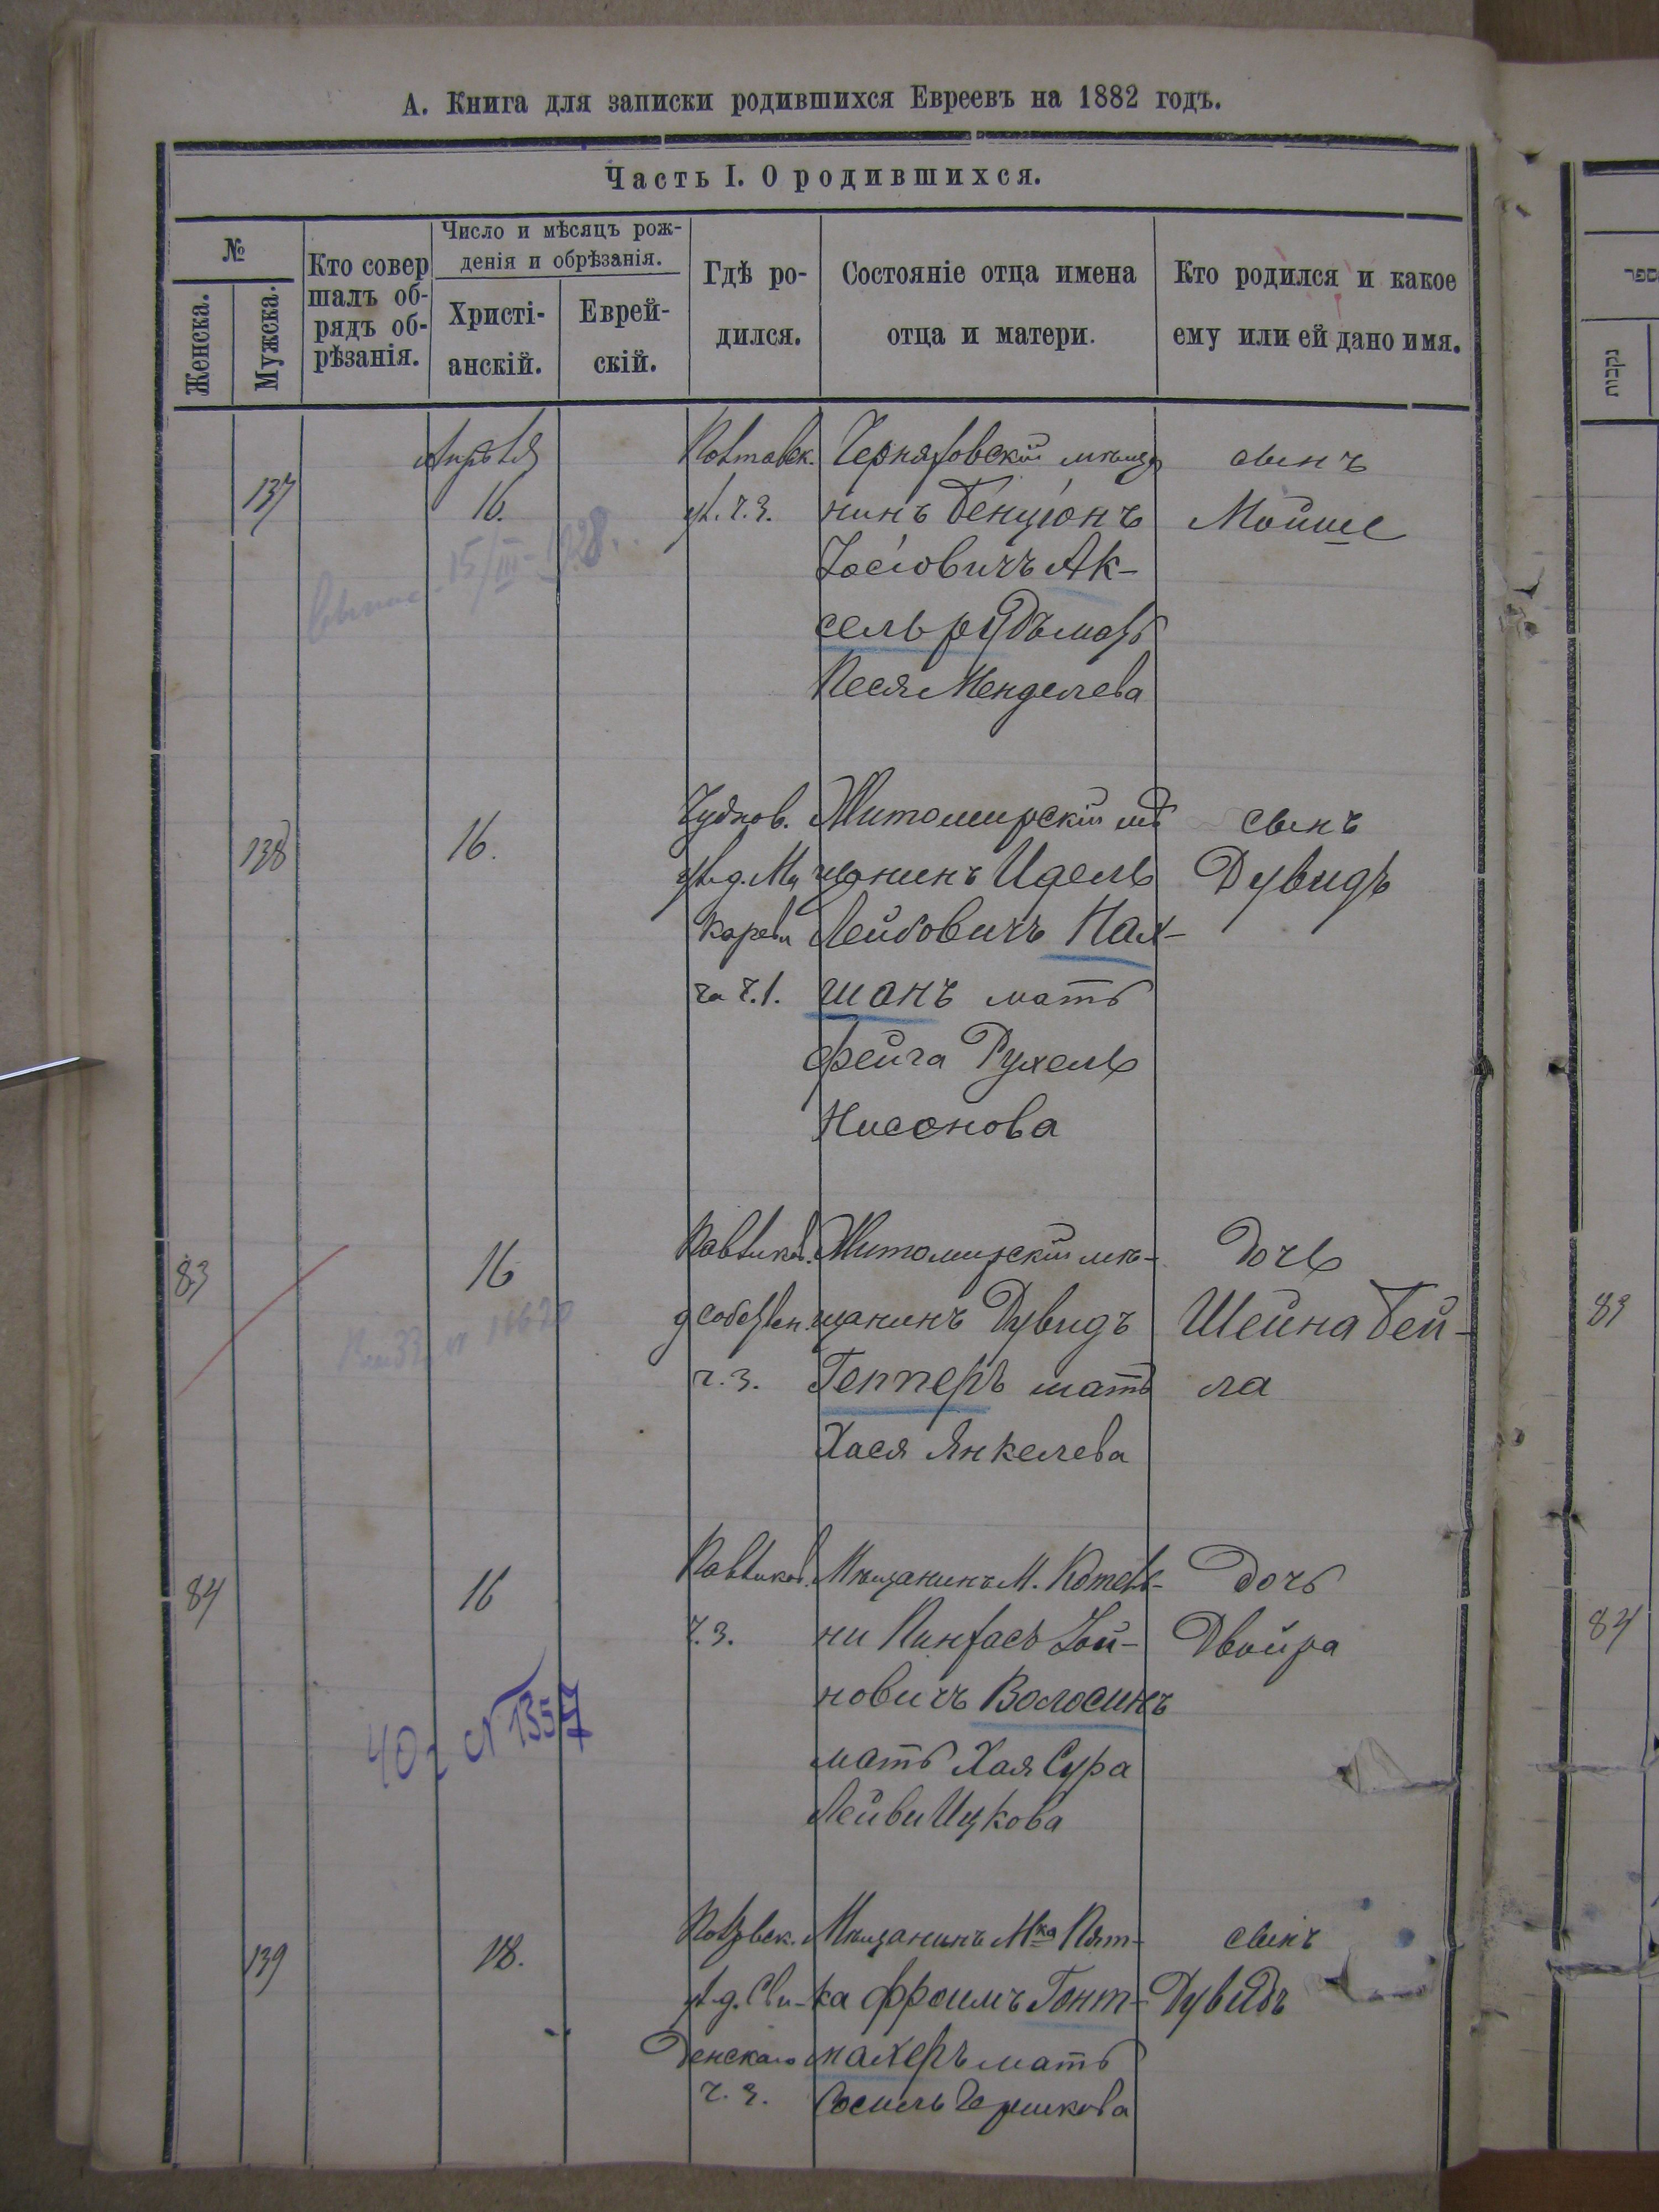 А. Книга для записки родившихся Евреевъ на 1882 годъ.
Часть I. О родившихся.
№
Женска.
Мужска.
Кто совер
шалъ об-
рядъ об-
рѣзанія.
Число и мѣсяцъ рож-
денія и обрѣзанія.
Христі-
анскій.
Еврей-
скій.
Гдѣ ро-
дился.
Состояніе отца имена
отца и матери.
Кто родился и какое
ему или ей дано имя.
137
Апрѣля
16.
15/III-1928.
ул. ч. 3.
Черняховскій мѣща
нинъ Бенціонъ
Іосіовичъ Ак-
сельрудъ мать
Песя Менделева
сынъ
Мойше
138
16.
Чудnов.
ул. д. Му
ча ч. 1.
Житомирскій мѣ
щанинъ Идель
Лейбовичъ Нах-
шанъ мать
Фейга Рухель
Нисонова
сынъ
Дувидъ
83
16
д собствен.
ч. 3.
Житомирскій мѣ-
щанинъ Дувидъ
Геппер мать
Хася Янкелева
Дочь
Шейна Бей-
ла
84
16
ч. 3.
40 г №1357
Мѣщанинъ М. Котель-
ни Пинхасъ Зой-
новичъ Волосинъ
мать Хая Сура
Лейви Ицкова
Дочь
Двойра
139
18.
ул. д. Сви-
денскаго
ч. 3.
Мѣщанинъ Мка Пят-
ка Фроимъ Гонт-
махеръ мать
Сосиль Гершкова
сынъ
Дувидъ
ספר
נקבות
83
84